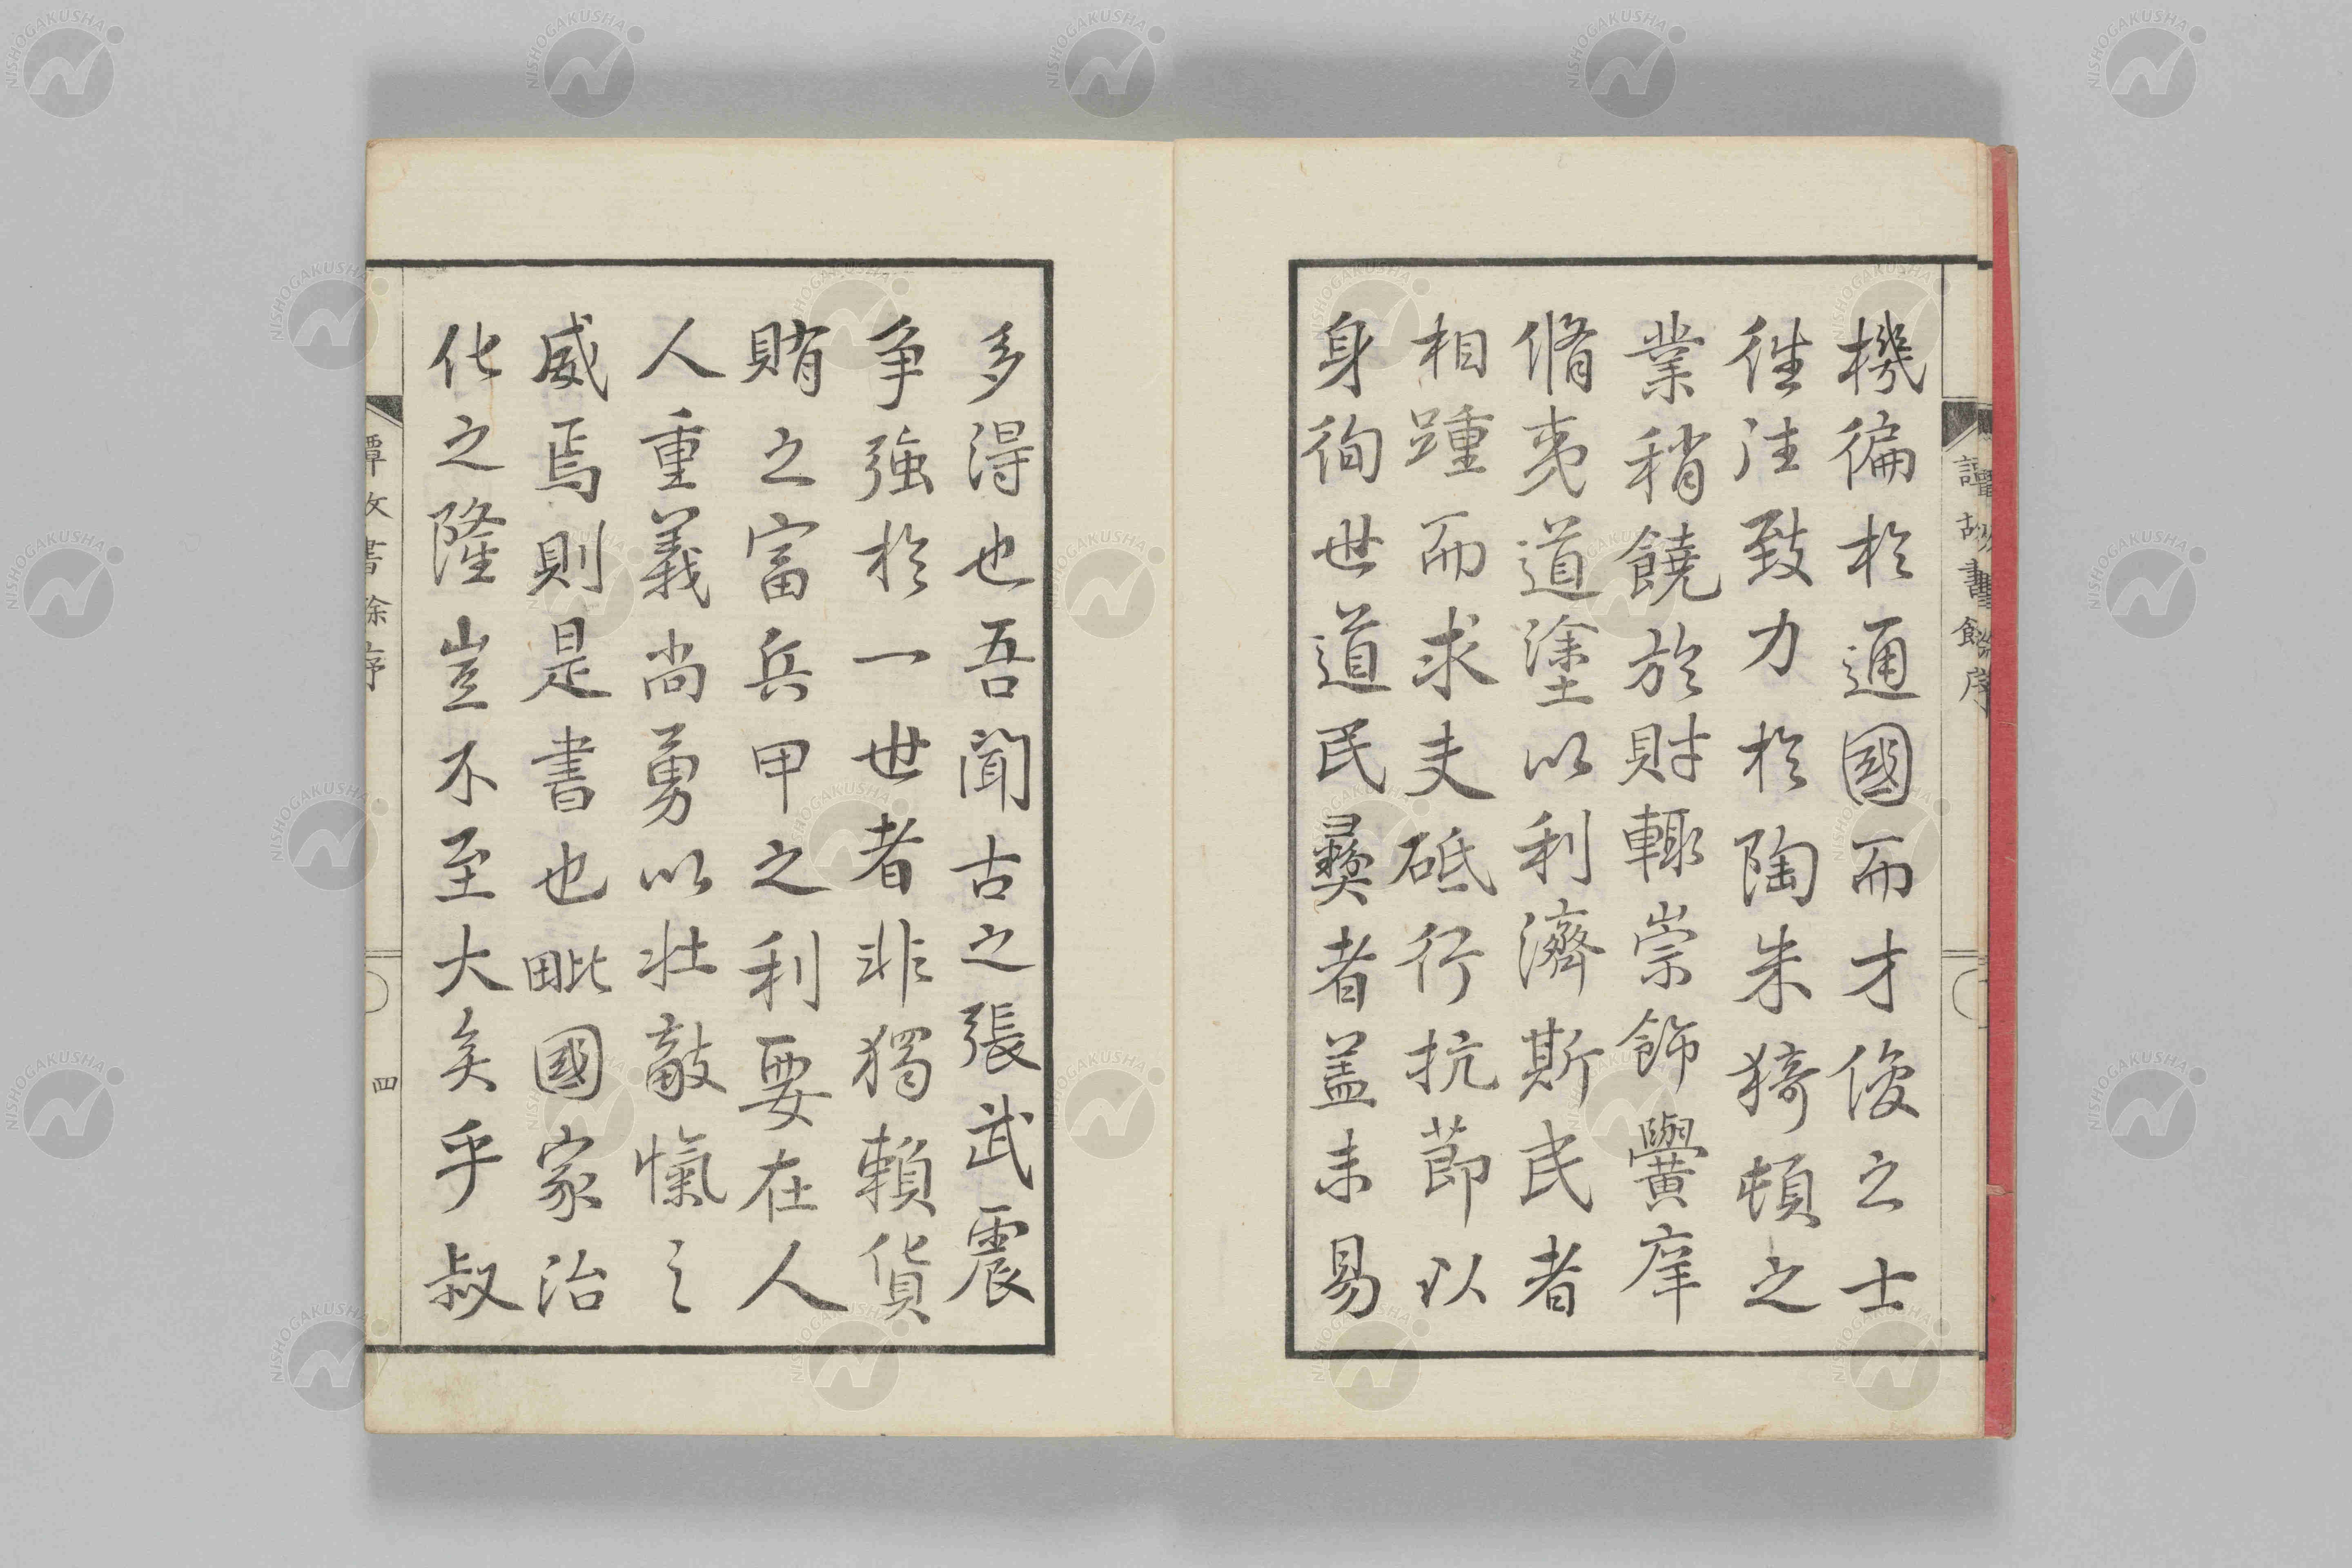 機徧於通國而才俊之士
徃注致力於陶朱猗頓之
業稍饒於財輙崇飾黌庠
脩夷道塗以利濟斯民者
相踵而求夫砥行抗節以
身徇世道民彝者蓋未易
多得也吾聞古之張武震
争強於一世者非獨賴貨
賄之富兵甲之利要在人
人重義尚勇以壯敵愾之
威焉則是書也毗國家治
化之隆豈不至大矣乎叔
譚故書餘序
四
NISHOGAKUSHA